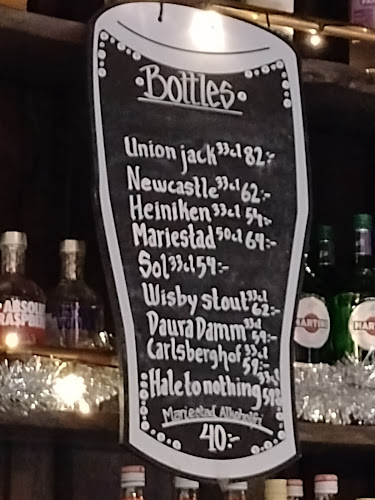 Bottles
Union jack 33cl 82:-
Newcastle 33cl 62:-
Heiniken 33cl 54:-
Mariestad 50cl 69:-
Sol 33cl 59:-
Wisby stout 33cl 62:-
Daura Damm 33cl 59:-
Carlsberghof 33cl 59:-
Hale to nothing 33cl 59:-
Mariestad Alkoholfri
40:-
ABSOLUT
RASPBERRI
MARTINI
MARTINI